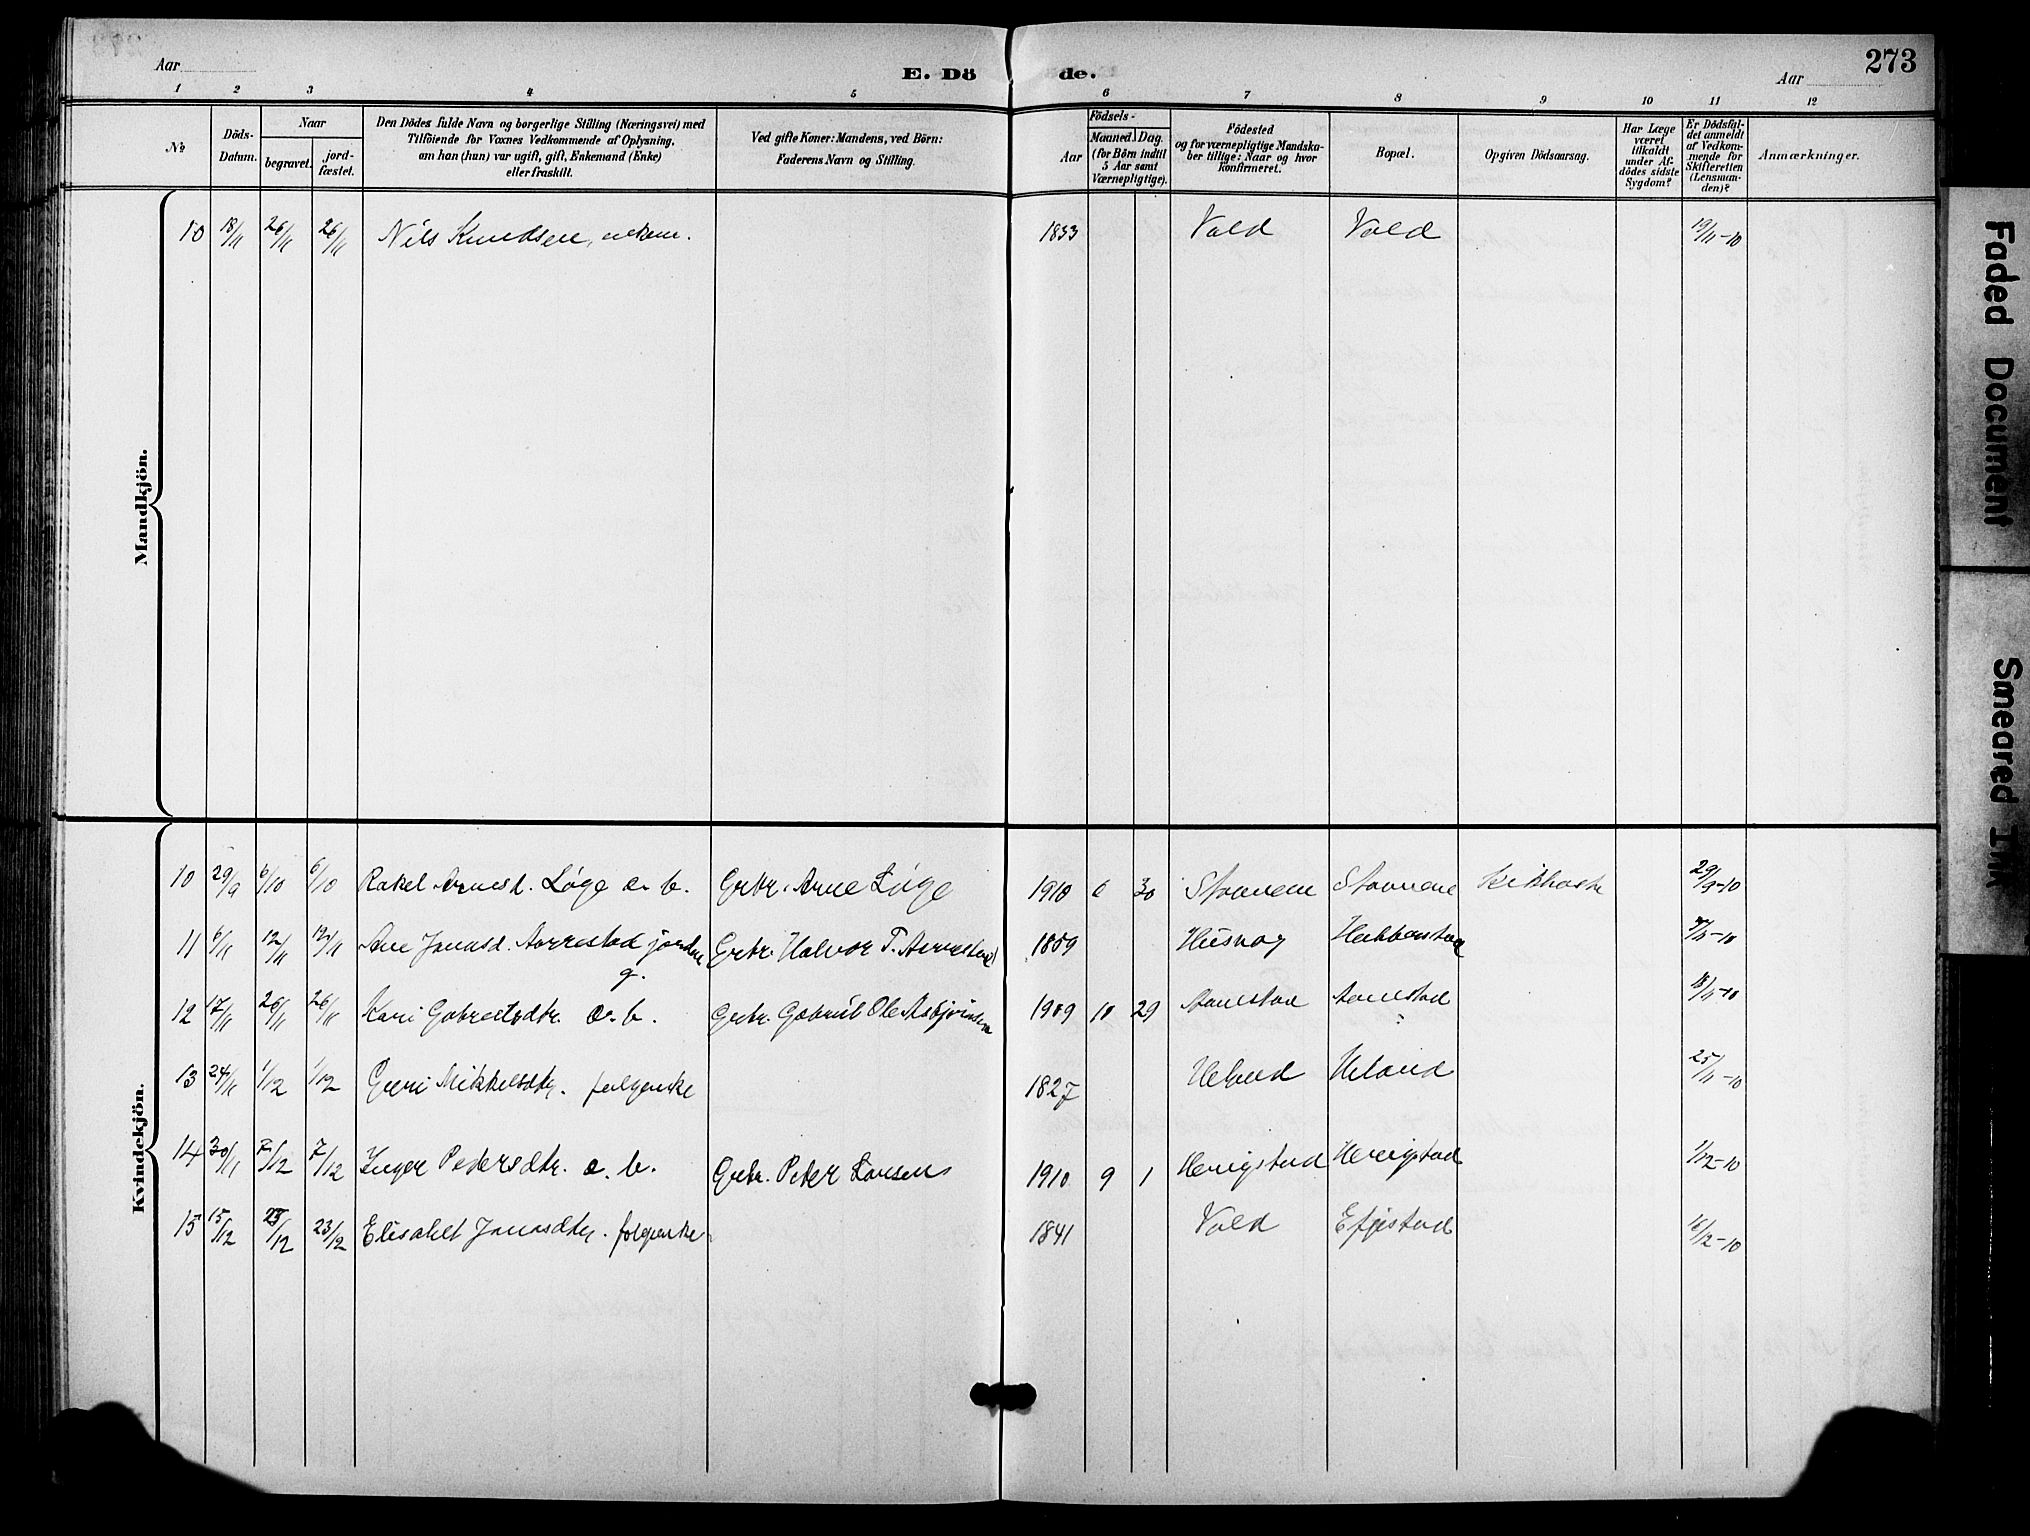 273
Aar
E. Dö
de.
Aar
1 2 3 4 5 6 7 8 9 10 11 12
No
Döds-
Datum.
Naar
begravet.
jord-
fæstet.
Den Dödes fulde Navn og borgerlige Stilling (Næringsvei) med
Tilföiende for Voxnes Vedkommende af Oplysning,
om han (hun) var ugift, gift, Enkemand (Enke)
eller fraskilt.
Ved gifte Koner: Mandens, ved Börn:
Faderens Navn og Stilling.
Födsels-
Aar
Maaned. Dag.
(for Börn indtil
5 Aar samt
Værnepligtige).
Födested
og for værnepligtige Mandska-
ber tillige: Naar og hvor
konfirmeret.
Bopæl.
Opgiven Dödsaarsag.
Har Læge
været
tilkaldt
under Af-
dödes sidste
Sygdom?
Er Dödsfal-
det anmeldt
af Vedkom-
mende for
Skifteretten
(Lensman-
den)?
Anmærkninger.
Mandkjön.
10 18/11 26/11 26/11 Nils Knudsen, 1833 Vold Vold 19/11-10
Kvindekjön.
10 29/9 6/10 6/10 Rakel Arnesd. Løge e. b. Grbr. Arne Løge 1910 6 30 Stavnem Kikhoste 29/9-10
11 6/11 12/11 12/11 Ane Jonasd. Aarrestad Grbr. Halvor T. Aarrestad 1859 7/11-10
g.
12 17/11 26/11 26/11 Kari Gabrielsdtr. e. b. Grbr. Gabriel Ole Asbjørnsen 1909 10 29 18/11-10
13 24/11 1/12 1/12 Guri Mikkelsdtr. folgenke 1827 Heland Heland 25/11-10
14 30/11 7/12 7/12 Inger Pedersdtr. e. b. Grbr. Peter Larsen 1910 9 1 Henigstad Henigstad 1/12-10
15 15/12 23/12 23/12 Elisabet Jonasdtr. folgenke 1841 Vold Efjestad 16/12-10
Faded Document
Smeared Ink